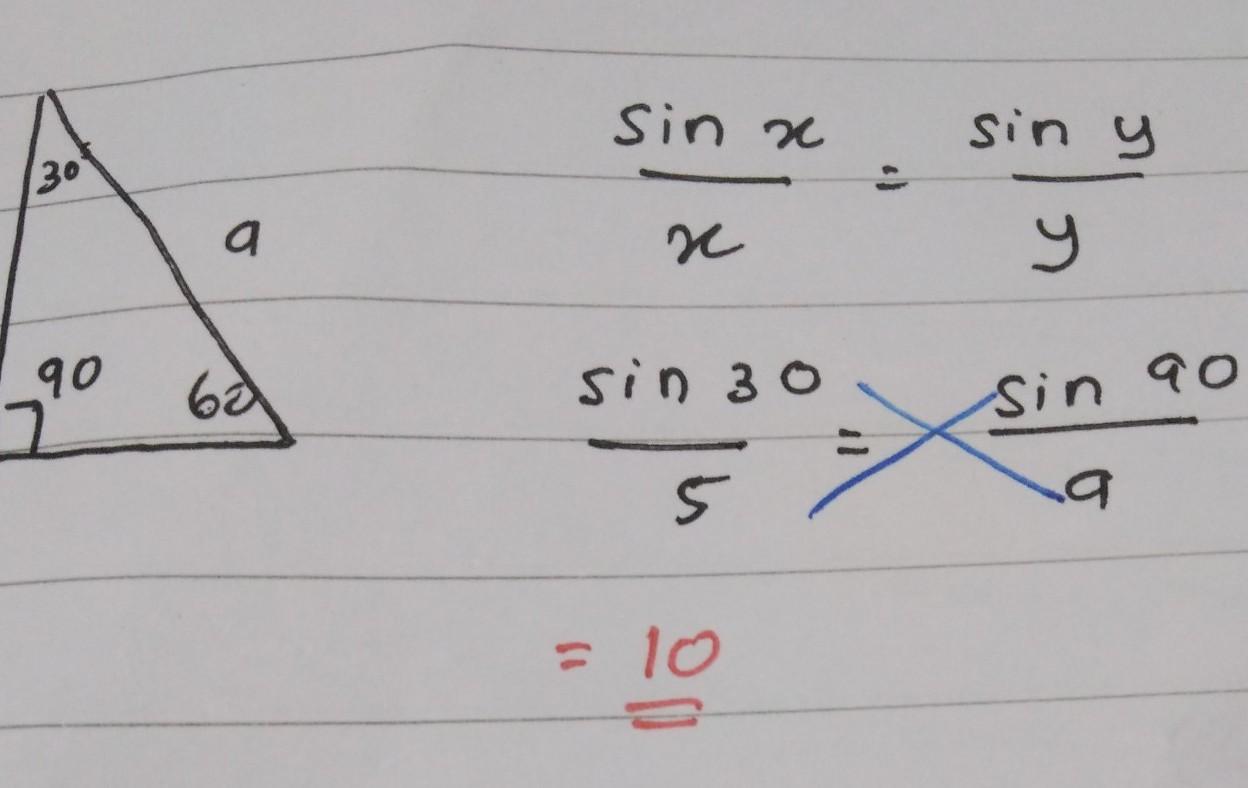 30
a
90
60
sin x = sin y
x y
sin 30 = sin 90
5 a
= 10